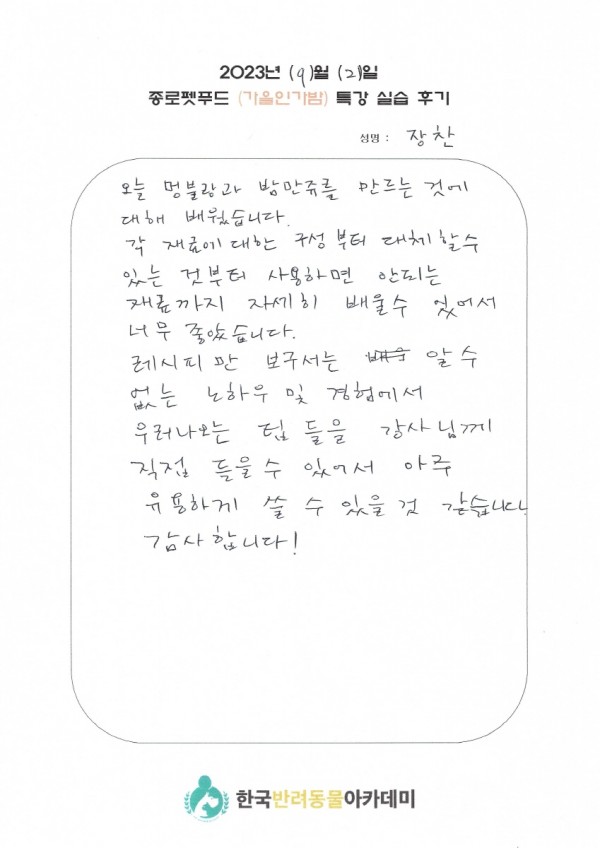 2023년 (9)월 (2)일
종로펫푸드 (가을인가밤) 특강 실습 후기
성명 : 장찬
오늘 멍블랑과 밤만쥬를 만드는 것에
대해 배웠습니다.
각 재료에 대한 구성부터 대체할수
있는 것부터 사용하면 안되는
재료까지 자세히 배울수 있어서
너무 좋았습니다.
레시피만 보구서는 배울 알 수
없는 노하우 및 경험에서
우러나오는 팁 들을 강사님께
직접 들을수 있어서 아주
유용하게 쓸 수 있을것 같습니다.
감사합니다!
한국반려동물아카데미